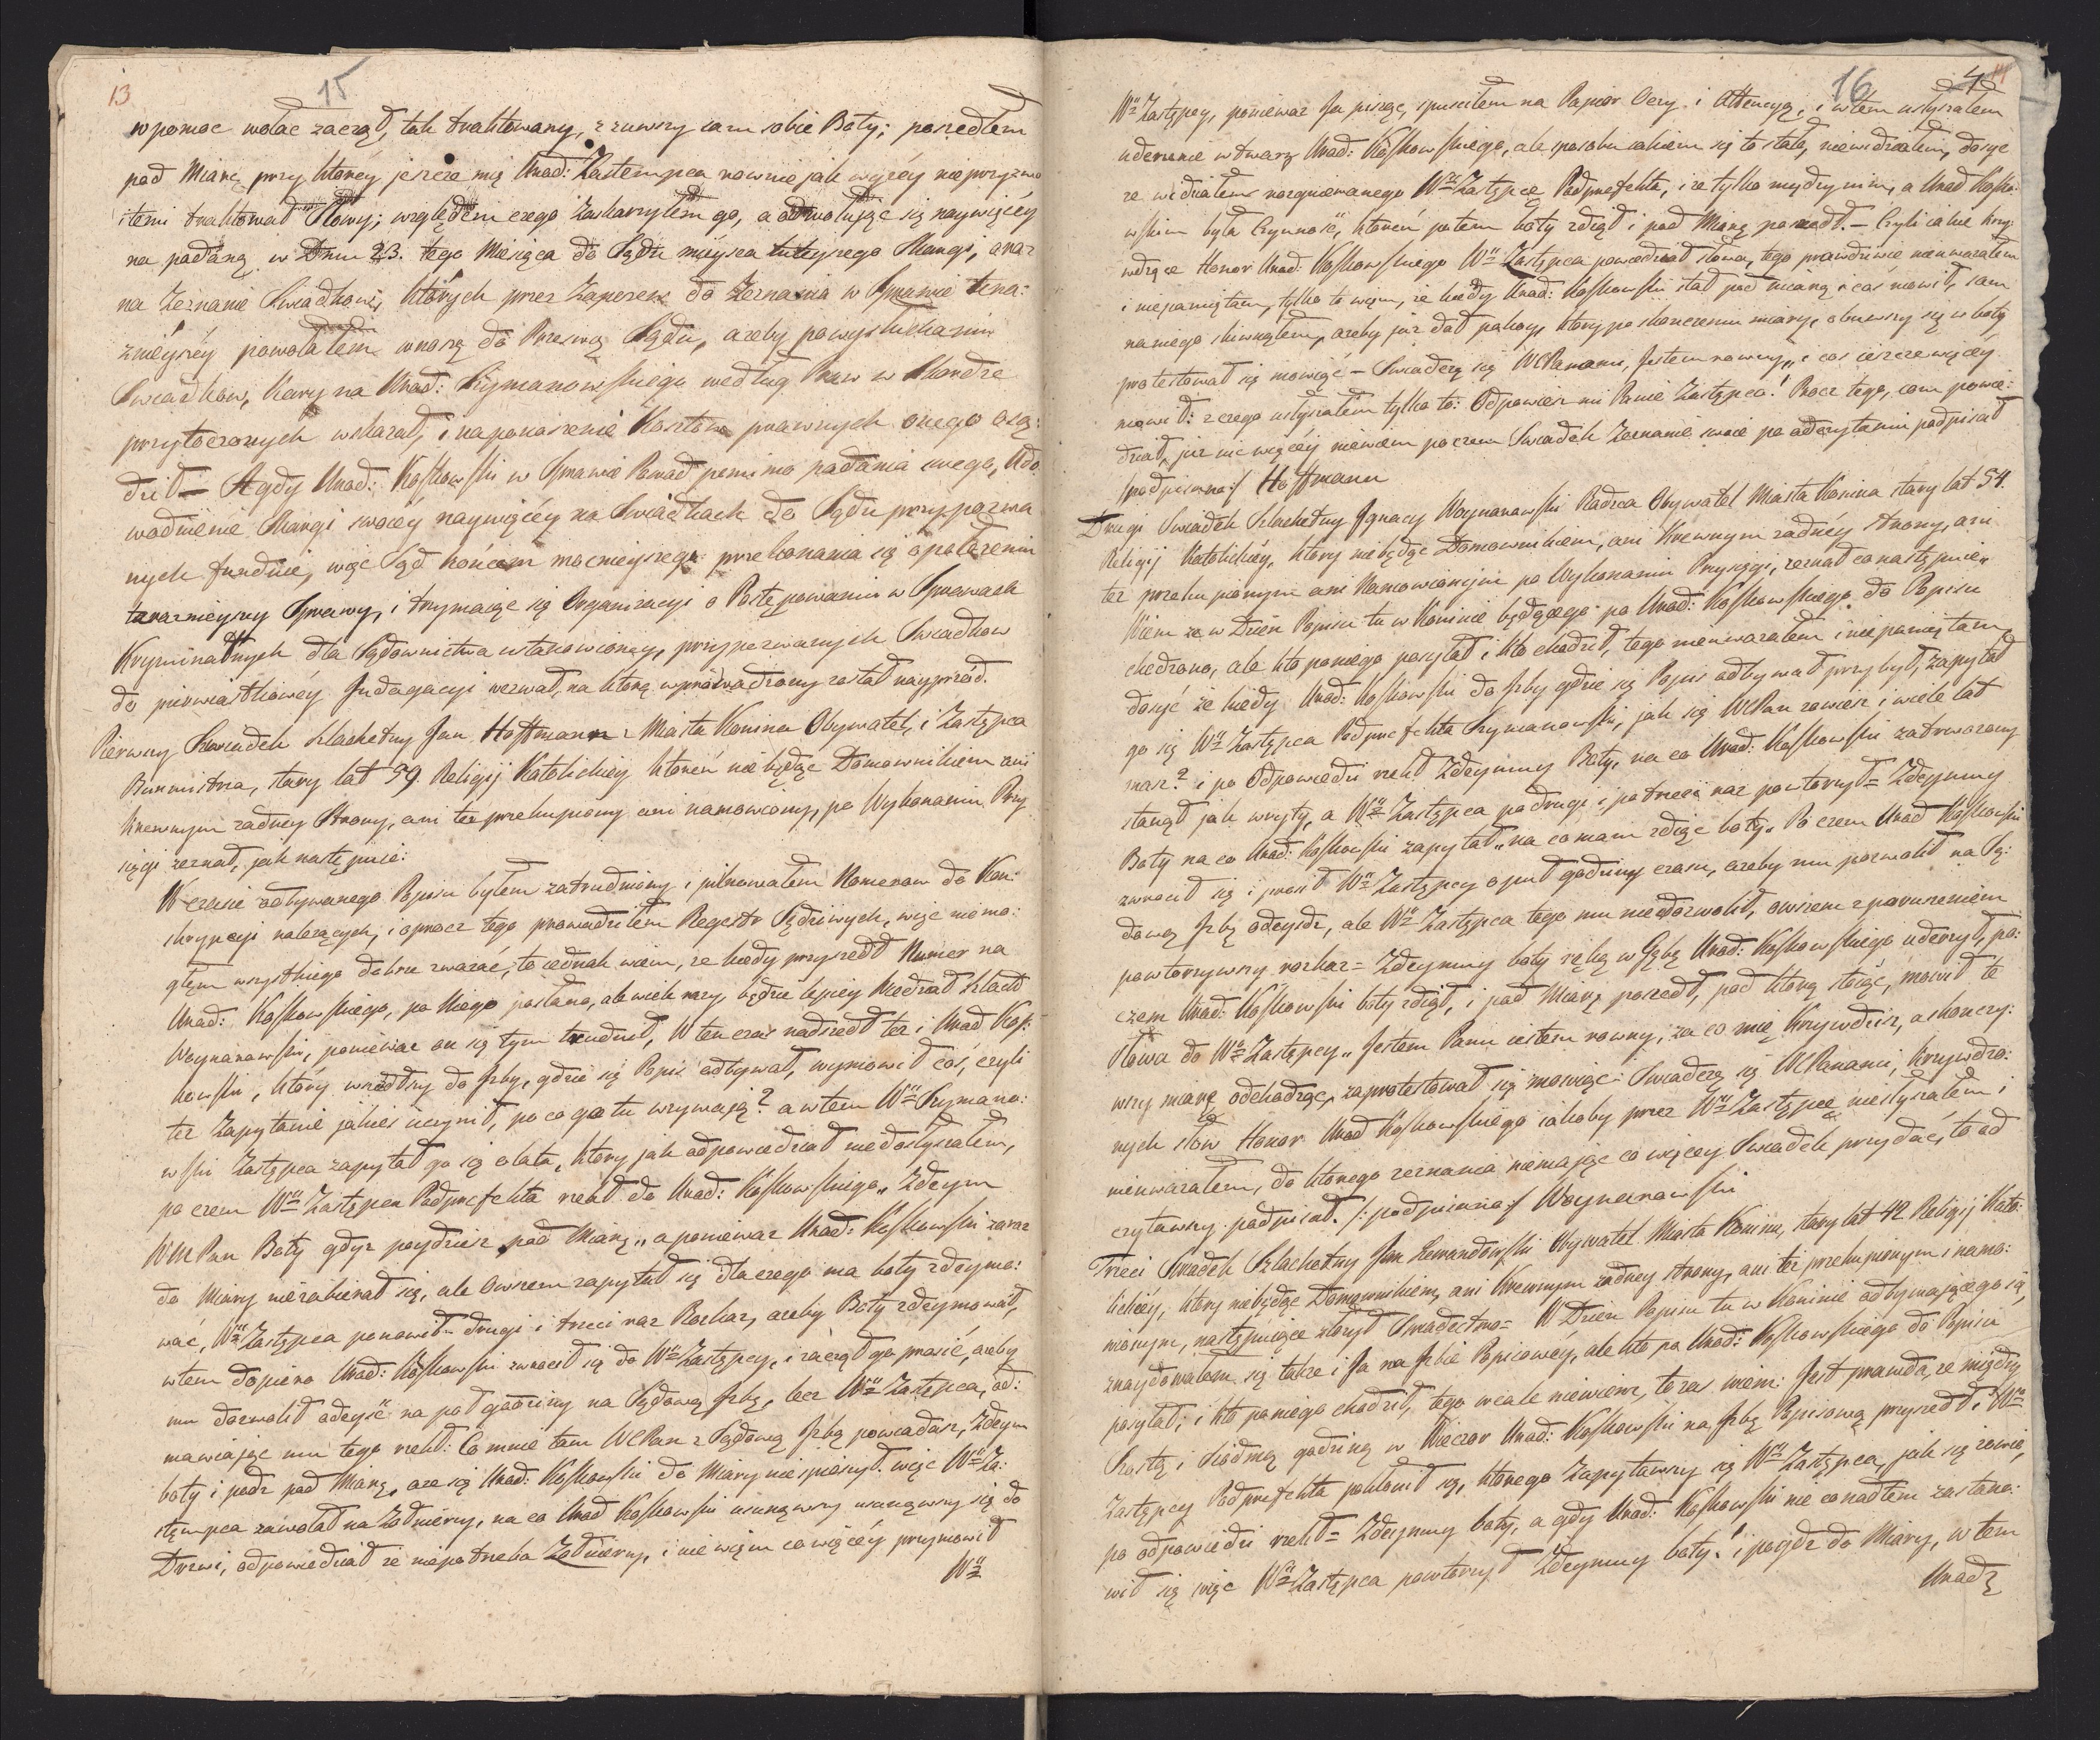 13
15
w pomoc wołać zaczął, tak traktowany, zzuwszy sam sobie Boty; poszedłem
pod Miarę przy któréy jeszcze mię Urad: Zastempca rownie jak wyżéy nieprzyzwo
itemi traktował Słowy; względem czego zaskarżyłem go, a odwołując się naywięcéy
na podaną w Dniu 23. tego Miesiąca do Sądu mieysca tuteyszego Skargę, oraz
na Zeznanie Swiadkow, których przez Zapozew do Zeznania w Sprawie tera:
znieyszéy powołałem wnoszę do Prześwę Sądu, ażeby po wysłuchaniu
Swiadkow, kary na Urad: Szymanowskiego według Praw w Skardze
przytoczonych wskazał, i na ponoszenie Kosztow prawnych onego osą:
dził — A gdy Urad: Koszkowski w Sprawie Powod pomimo podania swego, Udo
wodnienie Skargi swoiéy naywięcéy na Swiadkach do Sądu przypozwa
nych funduie, więc Sąd końcem mocnieyszego przekonania się o położeniu
teraznieyszy Sprawy, i trzymaiąc się Organizacyi o Postępowaniu w Sprawach
Kryminalnych dla Sądownictwa ustanowioney, przypozwanych Swiadkow
do pierwiastkowéy Indagacyi wezwał, na którą wprowadzony został nayprzód.
Pierwszy Swiadek Szlachetny Jan Hoffmann Miasta Konina Obywatel, i Zastępca
Burmistrza, stary lat 59. Religij Katolickiéy któren nie będąc Domownikiem ani
krewnym żadney Strony, ani też przekupiony ani namowiony, po Wykonaniu Przy
sięgi zeznał, jak następuie:
W czasie odbywanego Popisu byłem zatrudniony i pilnowałem Numerow do Kon:
skrypcyi należących, i oprocz tego prowadziłem Regestr Sądziwych, więc niemo:
głem wszystkiego dobrze zważać, to iednak wiem, że kiedy przyszedł Numer na
Urad: Koszkowskiego, po Niego posłano, ale wiele razy, będzie lepiey wiedział Szlache
Woynarowski, ponieważ on się tym trudnił, W ten czas nadszedł też i Urad Kosz:
kowski, który wszedłszy do Izby, gdzie się Popis odbywał, wymowił cos, czyli
też Zapytanie jakieś uczynił, po co go tu wzywają? a wtem Wny Szymano:
wski Zastępca zapytał go się o lata, który jak odpowiedział niedosłyszałem,
po czem Wny Zastępca Podprefekta rzekł do Urad: Koszkowskiego „Zdeym
WM Pan Boty gdyż poydziesz pod Miarę„ a ponieważ Urad: Koszkowski zaraz
do Miary niezabierał się, ale owszem zapytał się dla czego ma boty zdeymo:
wać, Wny Zastępca ponowił drugi i trzeci raz Rozkaz, ażeby Boty zdeymował,
wtem dopiero Urad: Koszkowski zwrocił się do Wny Zastępcy, i zaczął go prosić, ażeby
mu dozwolił odeyść na poł godziny na Sądową Izbę, lecz Wny Zastępca, od:
mawiając mu tego rzekł: Co mnie tam WCPan z Sądową Izbą powiadasz, Zdeym
boty i podz pod Miarę, ale się Urad: Koszkowski do Miary nie spieszył. więc Wny Za:
stęmpca zawołał na Żołnierzy, na co Urad Koszkowski usunąwszy usunąwszy się do
Drzwi, odpowiedział że niepotrzeba Żołnierzy, i nie wiem co więcéy przymowił
Wny
16
4
14
Wny Zastępcy, ponieważ Ja pisząc, spuściłem na Papier Oczy i Attencyą, i wtem usłyszałem
uderzenie w twarz Urad: Koszkowskiego, ale sposobu iakiem się to stało, niewidziałem, dosyć
że widziałem rozgniewanego Wny Zastępcę Podprefekta, i że tylko między nim, a Urad Koszko
wskim była Czynność, któren potem boty zdiął i pod Miarę poszedł. — Czyli iakie krzy
wdzące Honor Urad: Koszkowskiego Wny Zastępca powiedział słowa, tego prawdziwie nieuważałem
i niepamiętam, tylko to wiem, że kiedy Urad: Koszkowski stał pod miarą i coś mowił, sam
na niego skinąłem, ażeby już dał pokoy, który po skończeniu miary, obuwszy się w boty
protestował się mowiąc — Swiadczę się WCPanami, Jestem rowny„ i cos ieszcze więcéy
mowił: z czego usłyszałem tylko to: Odpowiesz mi Panie Zastępca! Procz tego, com powie:
dział, już nic więcéy niewiem po czem Swiadek Zeznanie swoie po odczytaniu podpisał
/:podpisano:/ Hoffmann
Drugi Swiadek Szlachetny Jgnacy Woynarowski Radzca Obywatel Miasta Konina stary lat 54.
Religij Katolickiéy, który niebędąc Domownikiem, ani Krewnym żadnéy strony, ani
też przekupionym ani Namowionym po Wykonaniu Przysięgi, zeznał co następuie„
Wiem że w Dzień Popisu tu w Koninie będącego po Urad: Koszkowskiego do Popisu
chodzono, ale kto poniego posyłał i kto chodził, tego nieuważałem i nie pamiętam,
dosyć że kiedy Urad: Koszkowski do Izby gdzie się Popis odbywał przybył, zapytał
go się Wny Zastępca Podprefekta Szymanowski, jak się WCPan zowiesz i wiele lat
masz? i po Odpowiedzi rzekł Zdeymuy Boty, na co Urad: Koszkowski zatrwożony
stanął jak wryty, a Wny Zastępca podrugi i potrzeci raz powtorzył = Zdeymuy
Boty na co Urad: Koszkowski zapytał „na co mam zdiąć boty„ Po czem Urad Koszkowski
zwrocił się i prosił Wny Zastępcy o puł godziny czasu, ażeby mu pozwolił na Są:
dową Izbę odeyśdź, ale Wny Zastępca tego mu niedozwolił, owszem z poruszeniem
powtorzywszy rozkaz = Zdeymuy boty ręką w Gębę Urad: Koszkowskiego uderzył, po:
czem Urad: Koszkowski boty zdiął, i pod Miarę poszedł, pod którą stoiąc, mowił te
słowa do Wny Zastępcy„ Jestem Panu iestem rowny, za co mię Krzywdzisz, a skonczy:
wszy miarę odchodząc, zaprotestował się mowiąc: Swiadczę się WCPanami, krzywdzo:
nych słow Honor Urad Koszkowskiego iakoby przez Wny Zastępcę niesłyszałem i
nieuważałem, do którego zeznania niemając co więcey Swiadek przydać, to od
czytawszy podpisał. /:podpisano:/ Woynarowski
Trzeci Swiadek Szlachetny Jan Lewandowski Obywatel Miasta Konina, stary lat 42 Religij Kato:
lickiéy, który niebędąc Domownikiem, ani Krewnym żadney strony, ani też przekupionym i namo:
wionym, następuiące złożył Swiadectwo = W Dzień Popisu tu w Koninie odbywającego się,
znaydowałem się także i Ja na Izbie Popisowéy, ale kto po Urad: Koszkowskiego do Popisu
posyłał, i kto poniego chodził, tego wcale niewiem, teraz wiem: Jest prawda, że między
Szostą i siodmą godziną w Wieczor Urad: Koszkowski na Izbę Popisową przyszedł i Wny
Zastępcy Podprefekta pokłonił się, którego Zapytawszy się Wny Zastępca, jak się zowie,
po odpowiedzi rzekł = Zdeymuy boty, a gdy Urad: Koszkowski nie co nad tem zastano:
wił się więc Wny Zastępca powtorzył Zdeymuy boty„ i poydz do Miary, w tem
Urad